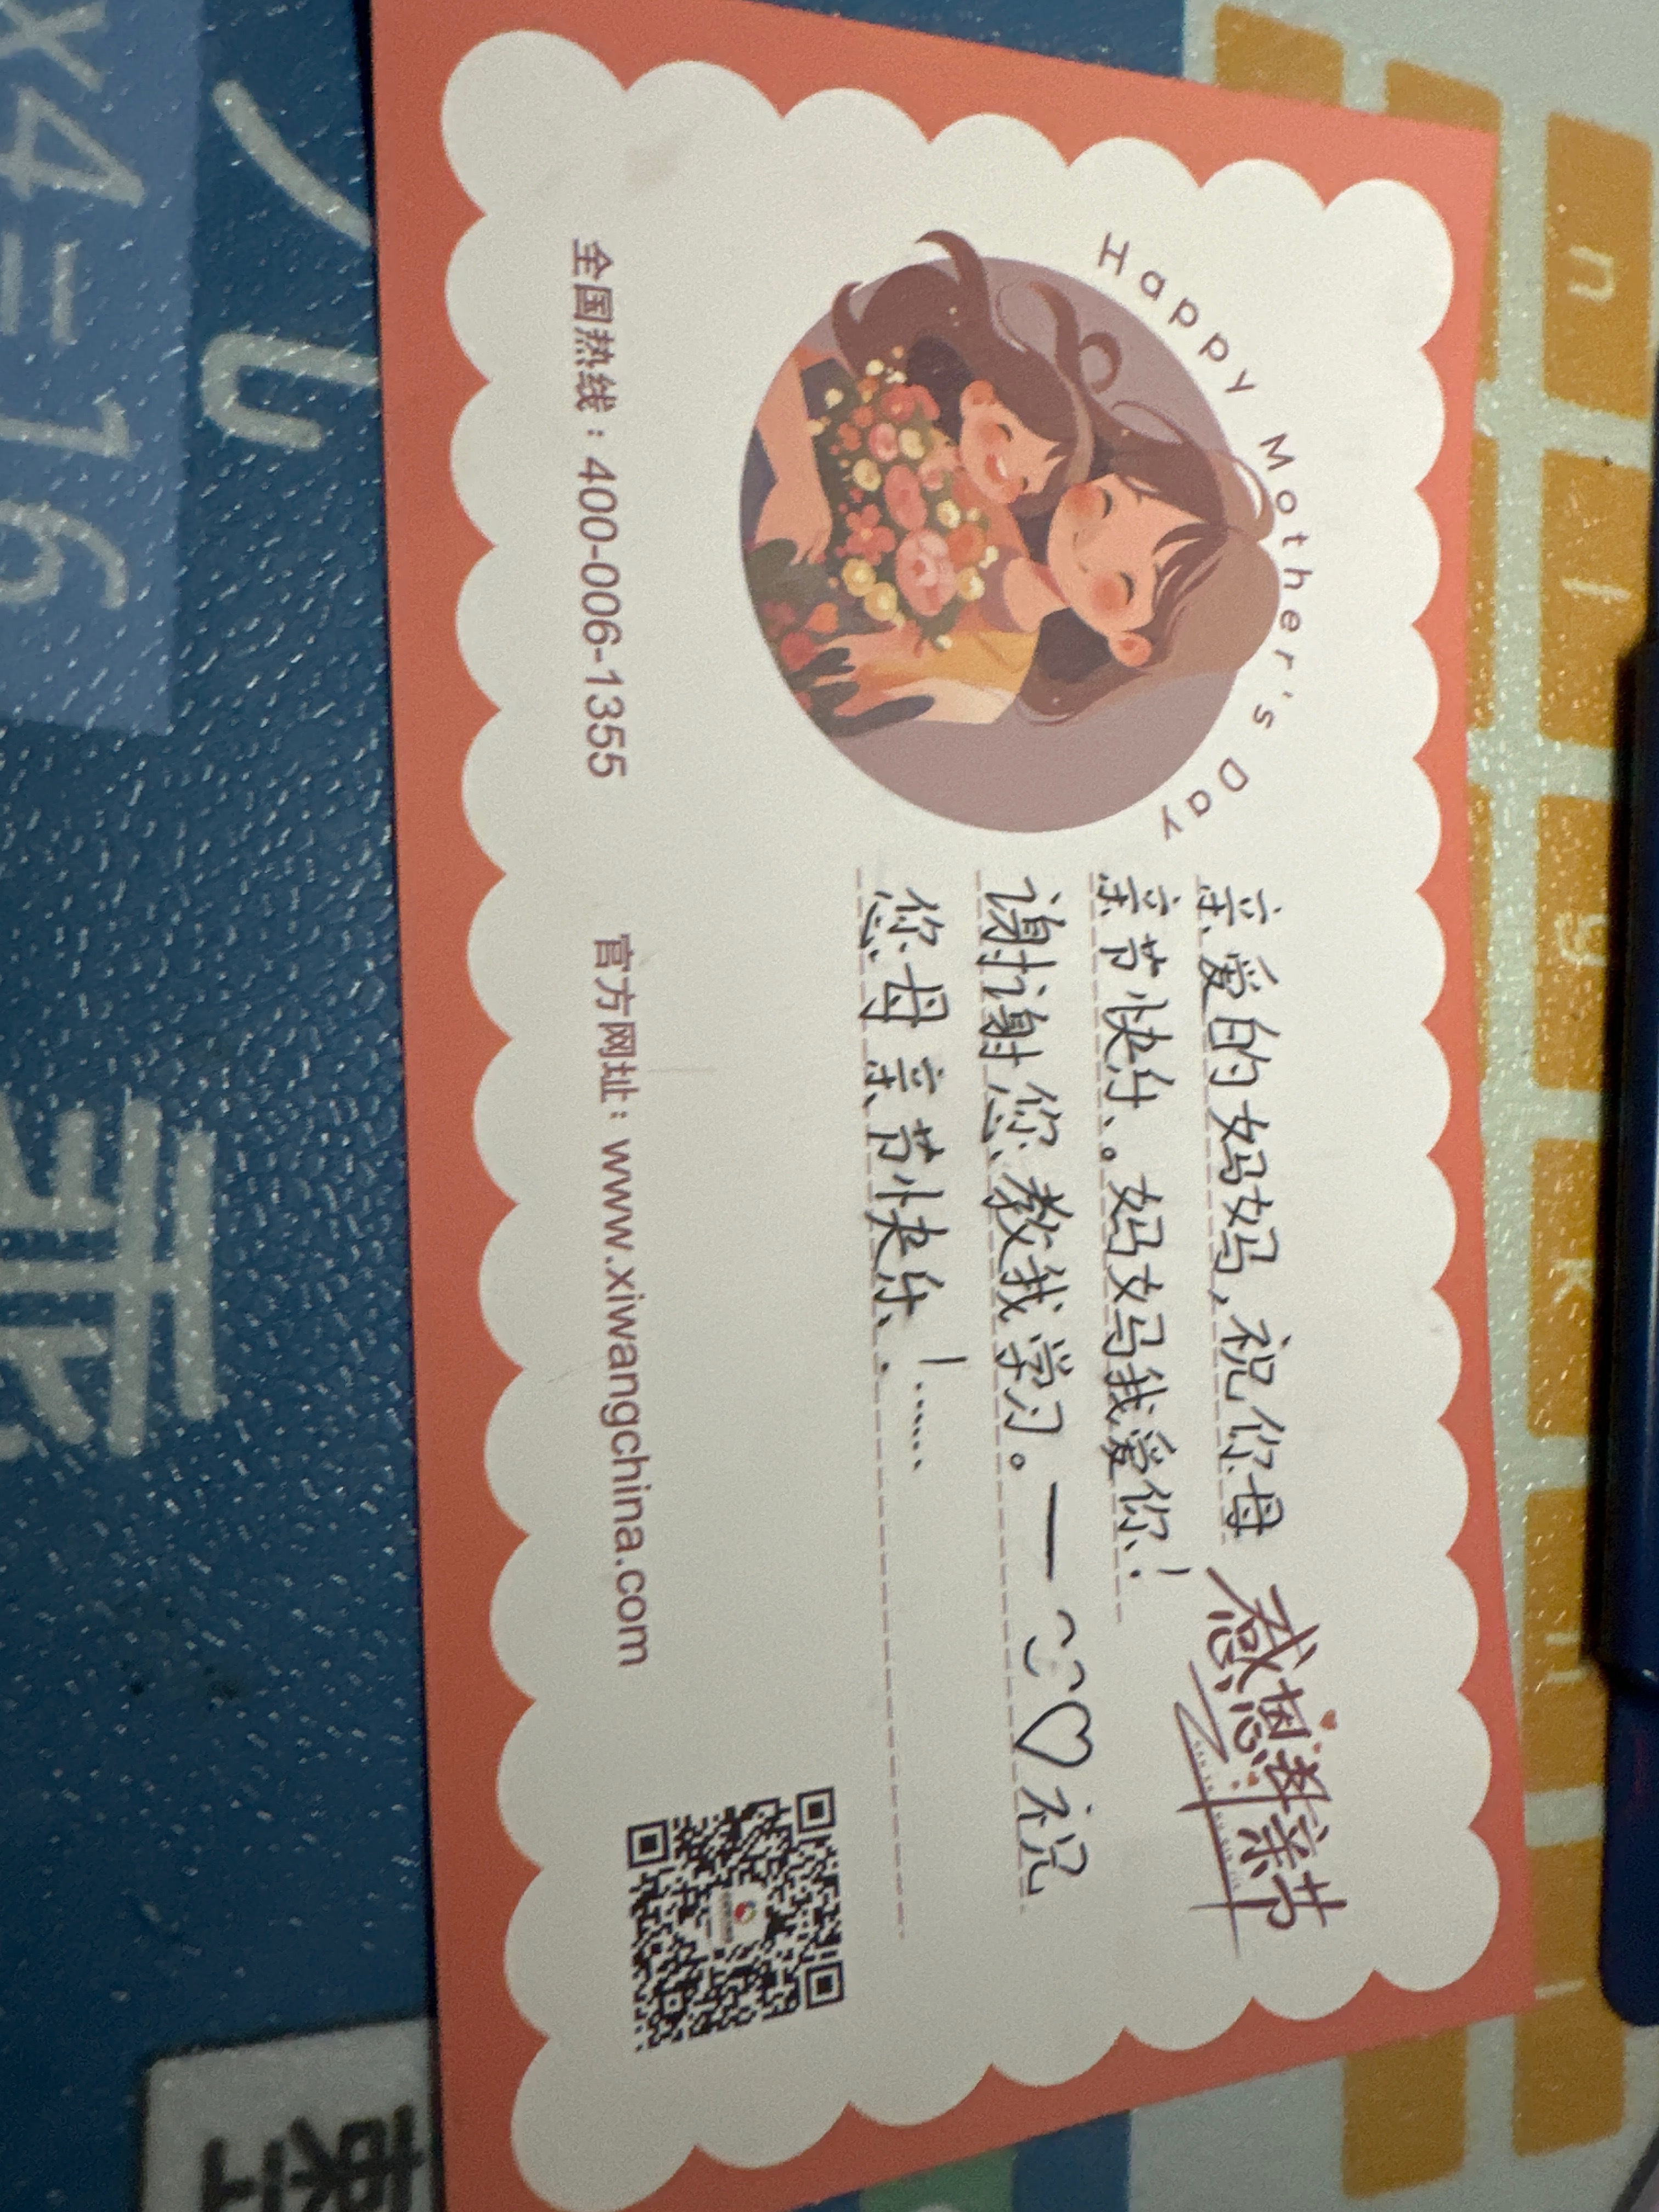 Happy Mother's Day
感恩母亲节
亲爱的妈妈,祝你母
亲节快乐。妈妈我爱你!
谢谢您教我学习。—♡祝
您母亲节快乐!......
全国热线:400-006-1355
官方网址:www.xiwangchina.com
x4=16
n
l
g
k